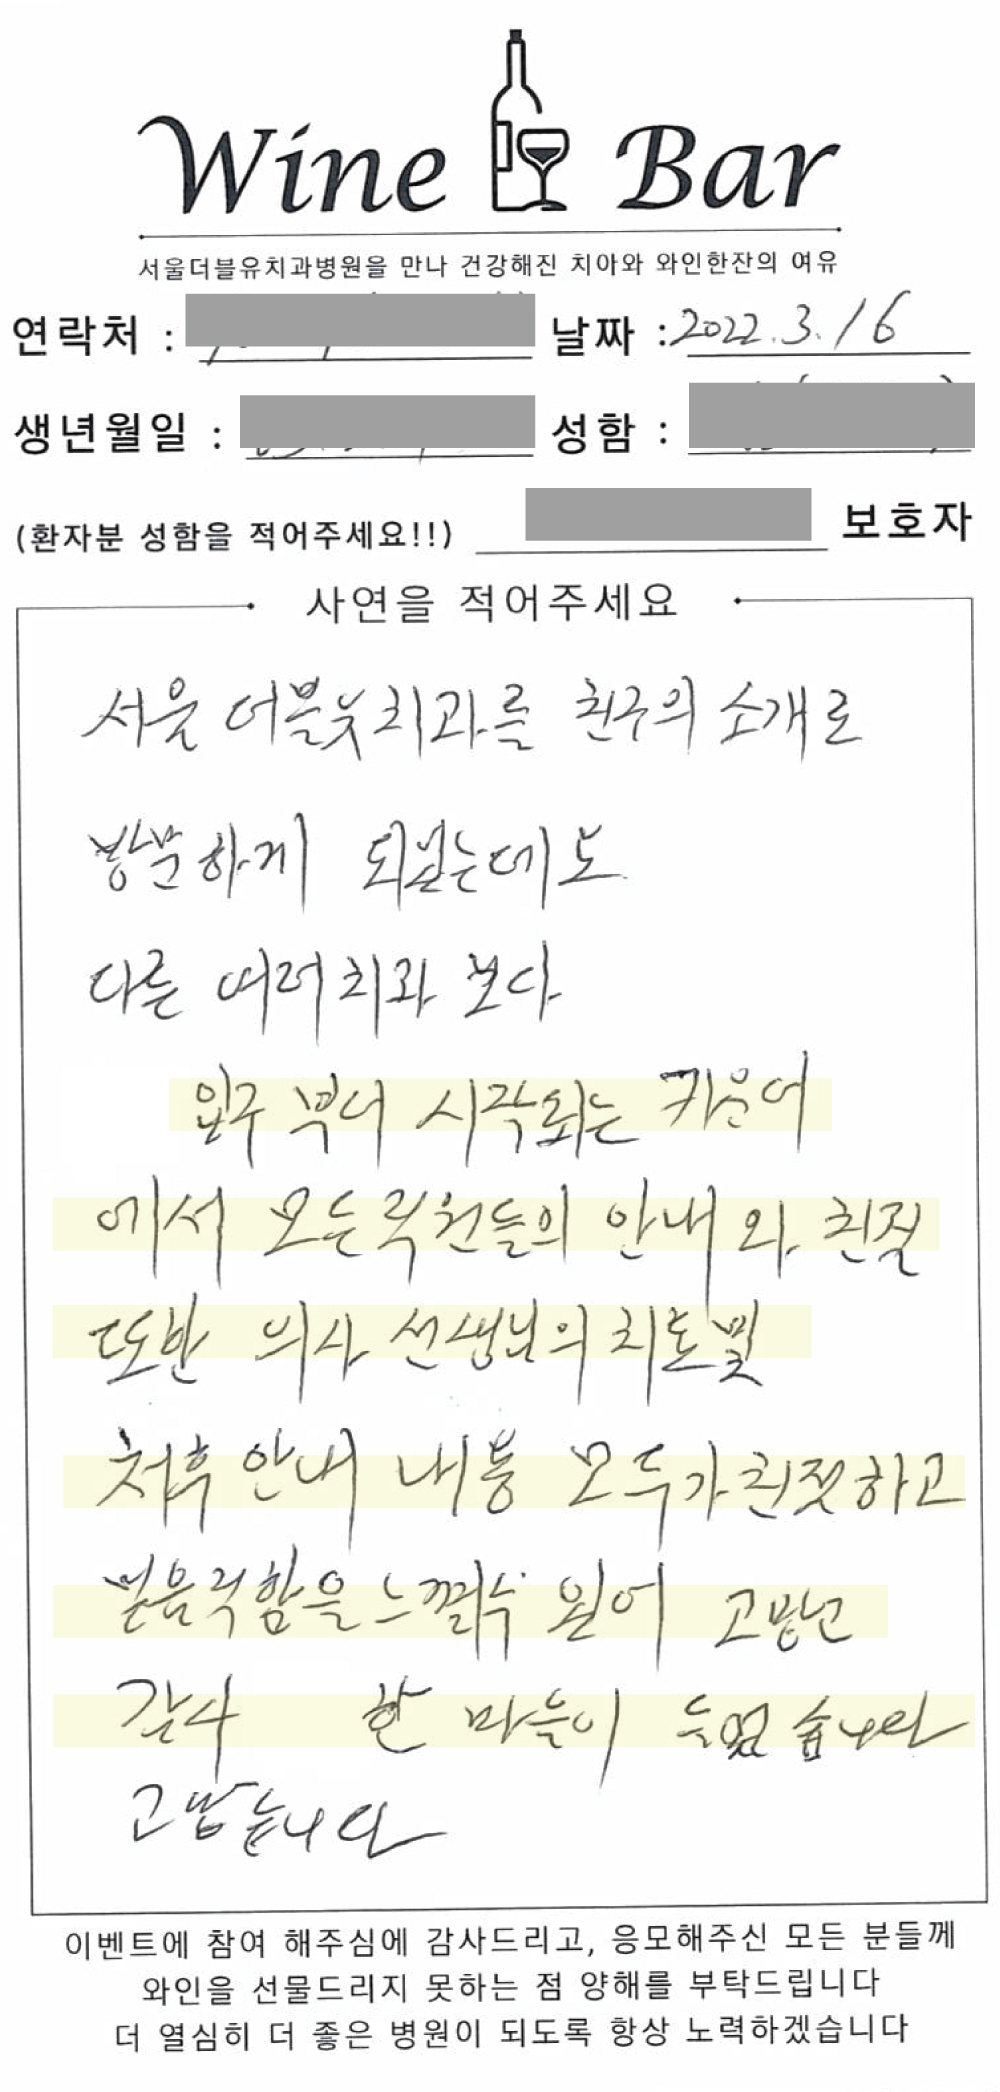 Wine Bar
서울더블유치과병원을 만나 건강해진 치아와 와인한잔의 여유
연락처 : 날짜 : 2022. 3. 16
생년월일 : 성함 :
(환자분 성함을 적어주세요!!) 보호자
사연을 적어주세요
서울 더블윳치과를 친구의 소개로
방문하게 되었는데도
다른 여러치과 보다
입구 부터 시작되는 카운터
에서 모든직원들의 안내 와 친절
또한 의사 선생님의 치료및
처후안내 내용 모두가 친절하고
믿음직함을 느낄수 있어 고맙고
감사 한 마음이 들었습니다
고맙습니다
이벤트에 참여 해주심에 감사드리고, 응모해주신 모든 분들께
와인을 선물드리지 못하는 점 양해를 부탁드립니다
더 열심히 더 좋은 병원이 되도록 항상 노력하겠습니다